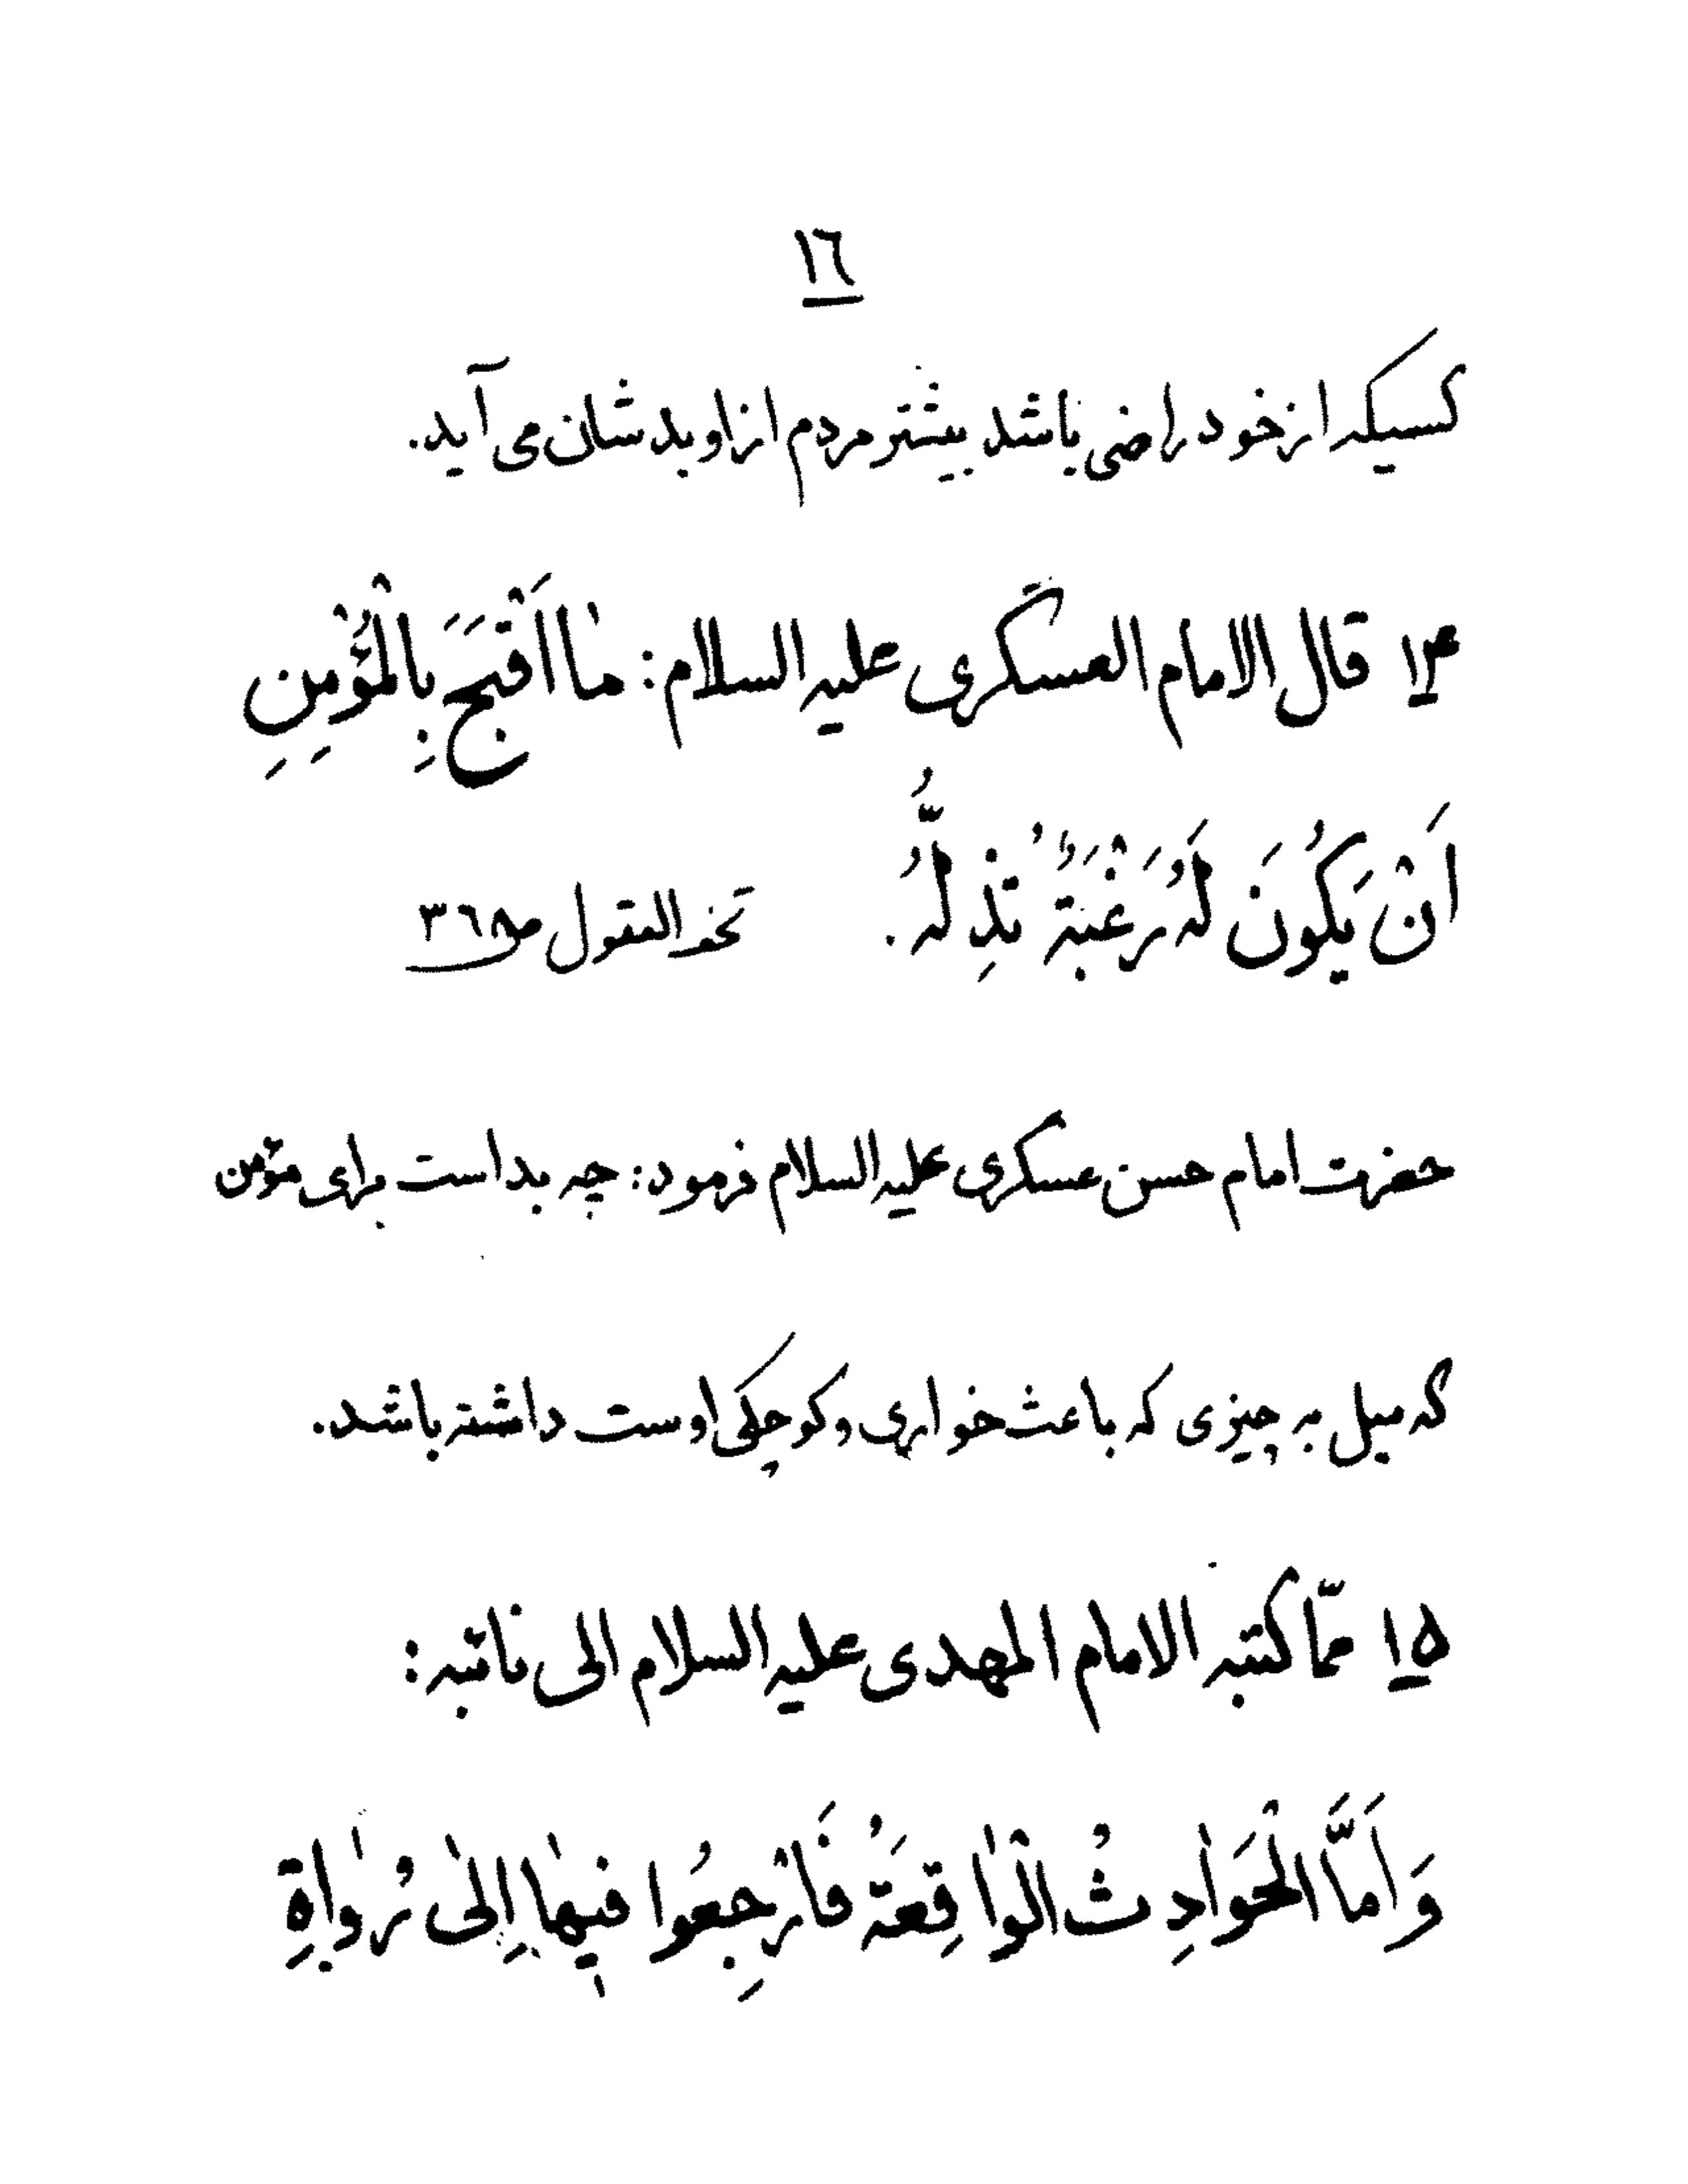 ١٦
كسيكه از خود راضى باشد بيشتر مردم از او بدشان مى آيد.
١٤ قال الامام العسكرى عليه السلام: مٰا اَقْبَحَ بِالْمُؤْمِنِ
اَنْ يَكُونَ لَهُ رَغْبَةٌ تُذِلُّهُ. تحف العقول ص ٣٦٨
حضرت امام حسن عسكرى عليه السلام فرمود: چه بد است براى مؤمن
كه ميل به چيزى كه باعث خوارى و كوچكى اوست داشته باشد.
١٥ ممّا كتبه الامام المهدى عليه السلام الى نائبه:
وَ اَمَّا الْحَوٰادِثُ الْوٰاقِعَةُ فَارْجِعُوا فيهٰا اِلىٰ رُوٰاةِ